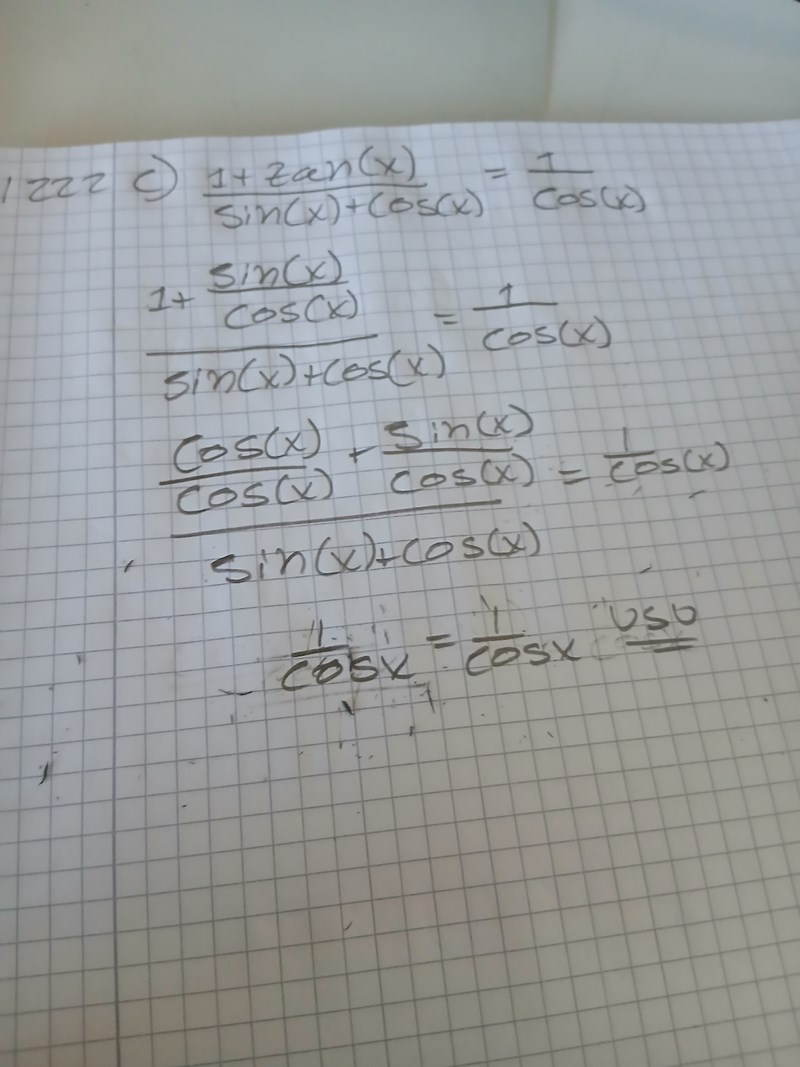 1222 c) (1+tan(x))/(sin(x)+cos(x)) = 1/cos(x)
(1+ sin(x)/cos(x))/(sin(x)+cos(x)) = 1/cos(x)
(cos(x)/cos(x) + sin(x)/cos(x))/(sin(x)+cos(x)) = 1/cos(x)
1/cosx = 1/cosx VSV